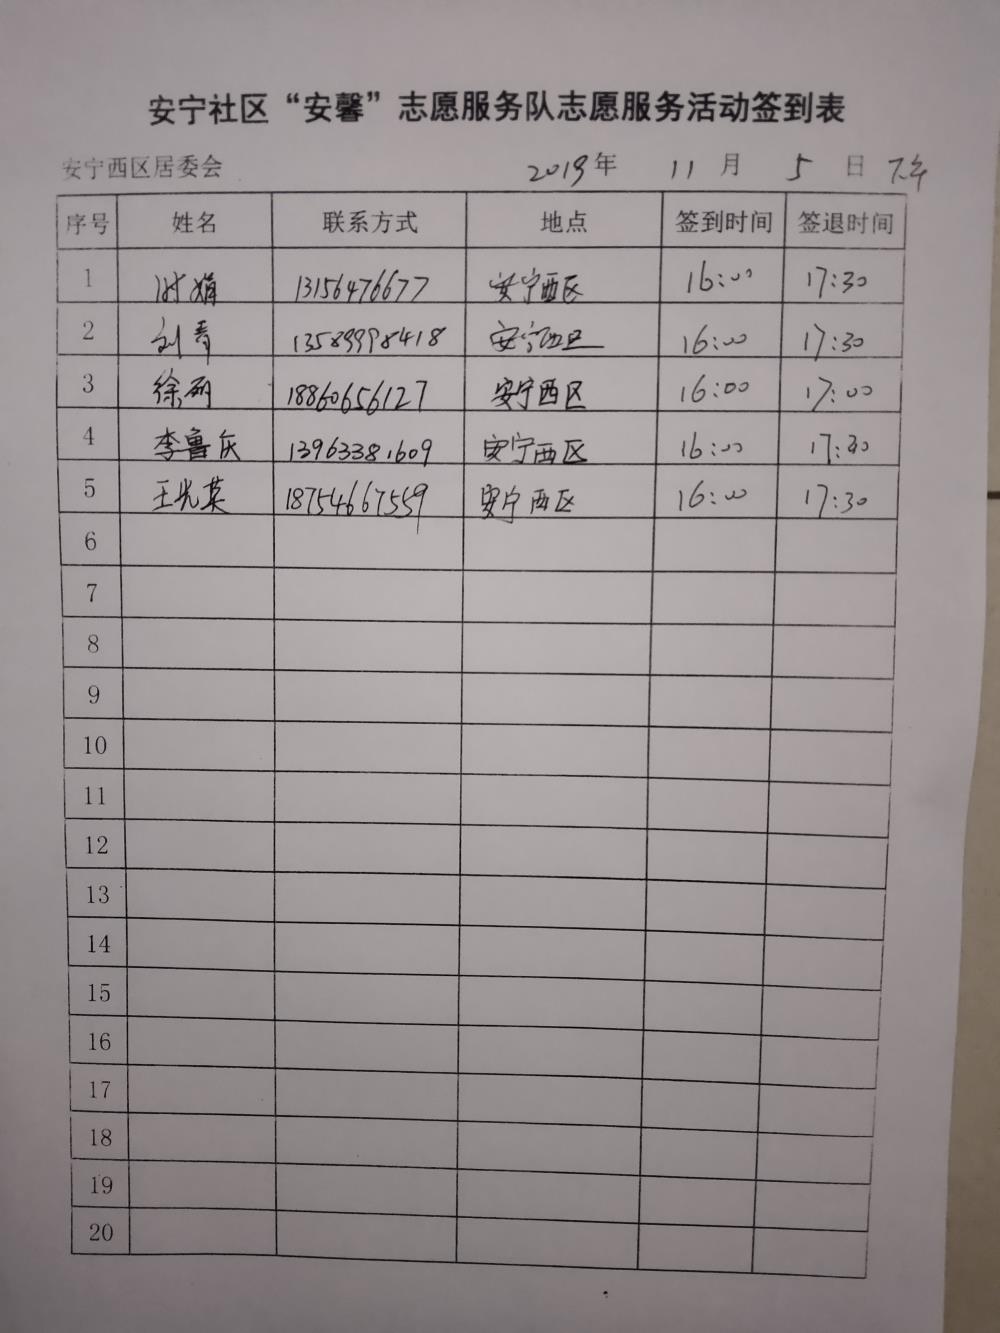 安宁社区“安馨”志愿服务队志愿服务活动签到表
安宁西区居委会 2019年 11月 5日 下午
序号 姓名 联系方式 地点 签到时间 签退时间
1 时娟 13156476677 安宁西区 16:00 17:30
2 刘青 13589998418 安宁西区 16:00 17:30
3 徐丽 18860656127 安宁西区 16:00 17:00
4 李鲁庆 13963381609 安宁西区 16:00 17:30
5 王光英 18754667559 安宁西区 16:00 17:30
6
7
8
9
10
11
12
13
14
15
16
17
18
19
20